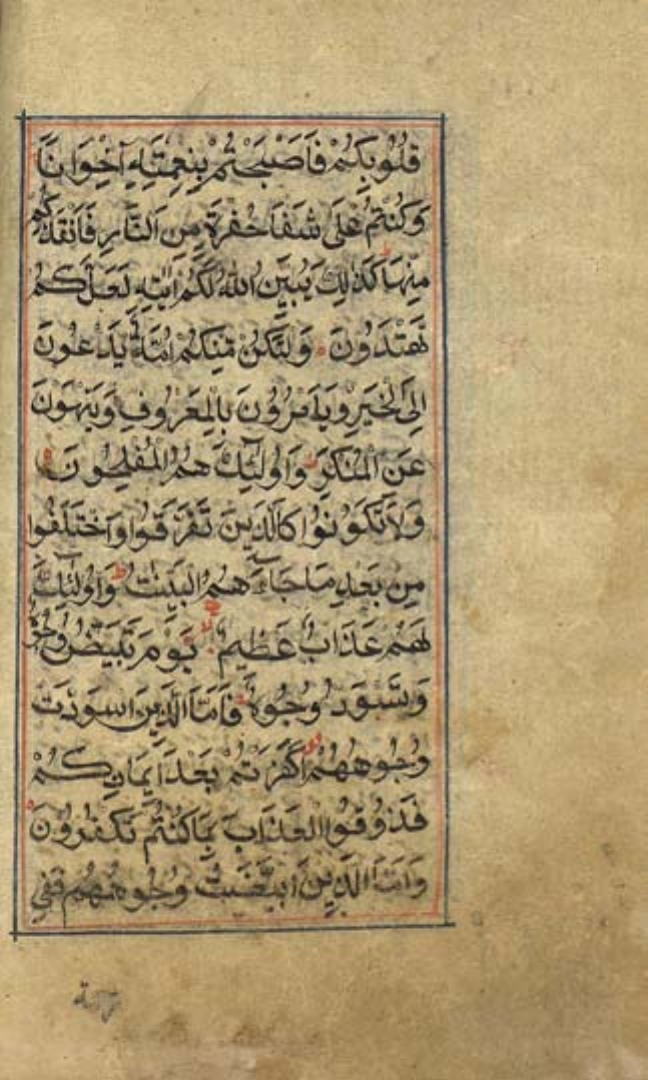 قُلُوبِكُمْ فَاَصْبَحْتُمْ بِنِعْمَتِهِ اِخْوَانًا
وَكُنْتُمْ عَلَى شَفَا حُفْرَةٍ مِنَ النَّارِ فَاَنْقَذَكُمْ
مِنْهَا كَذٰلِكَ يُبَيِّنُ اللّٰهُ لَكُمْ اٰيٰتِهِ لَعَلَّكُمْ
تَهْتَدُونَ وَلْتَكُنْ مِنْكُمْ اُمَّةٌ يَدْعُونَ
اِلَى الْخَيْرِ وَيَاْمُرُونَ بِالْمَعْرُوفِ وَيَنْهَوْنَ
عَنِ الْمُنْكَرِ وَاُولٰٓئِكَ هُمُ الْمُفْلِحُونَ
وَلَا تَكُونُوا كَالَّذِينَ تَفَرَّقُوا وَاخْتَلَفُوا
مِنْ بَعْدِ مَا جَاءَهُمُ الْبَيِّنٰتُ وَاُولٰٓئِكَ
لَهُمْ عَذَابٌ عَظِيمٌ يَوْمَ تَبْيَضُّ وُجُوهٌ
وَتَسْوَدُّ وُجُوهٌ فَاَمَّا الَّذِينَ اسْوَدَّتْ
وُجُوهُهُمْ اَكَفَرْتُمْ بَعْدَ اِيمَانِكُمْ
فَذُوقُوا الْعَذَابَ بِمَا كُنْتُمْ تَكْفُرُونَ
وَاَمَّا الَّذِينَ ابْيَضَّتْ وُجُوهُهُمْ فَفِي